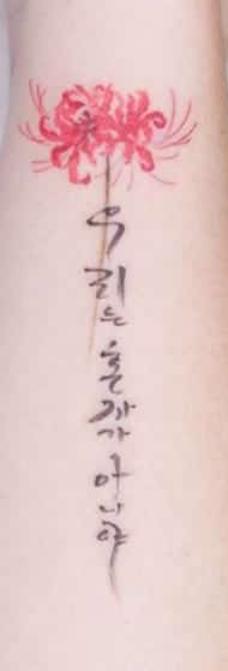 우리는 혼자가 아니야